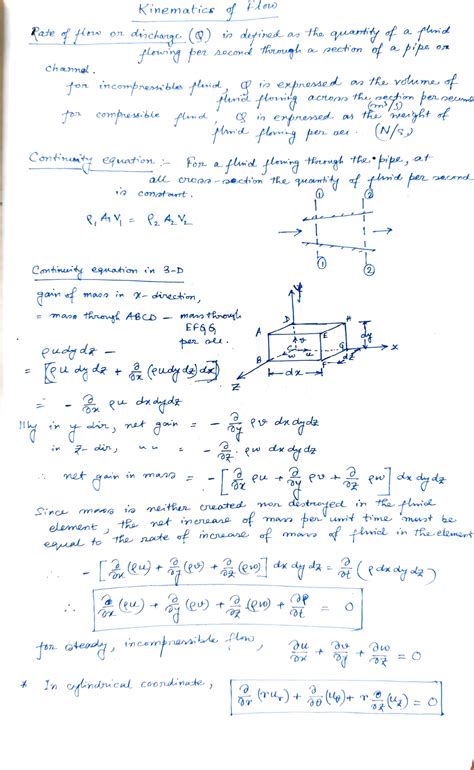 Kinematics of Flow
Rate of flow or discharge (Q) is defined as the quantity of a fluid
flowing per second through a section of a pipe or
channel.
for incompressible fluid, Q is expressed as the volume of
fluid flowing across the section per second
(m³/s)
for compressible fluid, Q is expressed as the weight of
fluid flowing per sec. (N/s)
Continuity equation :- For a fluid flowing through the pipe, at
all cross-section the quantity of fluid per second
is constant.
① ②
ρ₁A₁V₁ = ρ₂A₂V₂
① ②
Continuity equation in 3-D
gain of mass in x-direction,
= mass through ABCD - mass through
EFGG
per sec.
D H A E B C F G u v w x y z dx dy dz
ρu dy dz -
= [ρu dy dz + ∂/∂x (ρu dy dz) dx]
= - ∂/∂x ρu dx dy dz
|||ly in y dir, net gain = - ∂/∂y ρv dx dy dz
in z-dir, u u = - ∂/∂z ρw dx dy dz
∴ net gain in mass = - [∂/∂x ρu + ∂/∂y ρv + ∂/∂z ρw] dx dy dz
Since mass is neither created nor destroyed in the fluid
element, the net increase of mass per unit time must be
equal to the rate of increase of mass of fluid in the element
- [∂/∂x (ρu) + ∂/∂y (ρv) + ∂/∂z (ρw)] dx dy dz = ∂/∂t (ρ dx dy dz)
∴ ∂/∂x (ρu) + ∂/∂y (ρv) + ∂/∂z (ρw) + ∂ρ/∂t = 0
for steady, incompressible flow, ∂u/∂x + ∂v/∂y + ∂w/∂z = 0
* In cylindrical coordinate, ∂/∂r (r uᵣ) + ∂/∂θ (u_θ) + r ∂/∂z (u_z) = 0